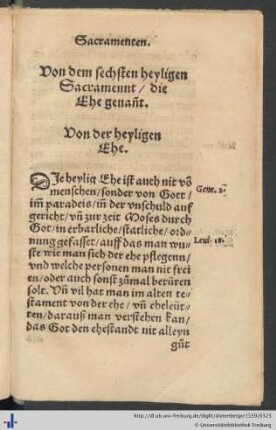 Sacramenten.
Von dem sechsten heyligen
Sacramennt / die
Ehe genañt.
Von der heyligen
Ehe.
DJe heylig Ehe ist auch nit võ
menschen / sonder von Gott /
im̃ paradeis / in̄ der vnschuld auf
gericht / vñ zur zeit Moses durch
Got / in erbarliche / statliche / ord-
nung gefasset / auff das man wu-
ste wie man sich der ehe pflegenn /
vnd welche personen man nit frei
en / oder auch sonst zůmal berüren
solt. Vñ vil hat man im alten te-
stament von der ehe / vñ eheleüt-
ten / darauß man verstehen kan /
das Got den ehestandt nit alleyn
gůt
Gene. 2.
Leui. 18.
http://dl.ub.uni-freiburg.de/diglit/dietenberger1539/0323
© Universitätsbibliothek Freiburg